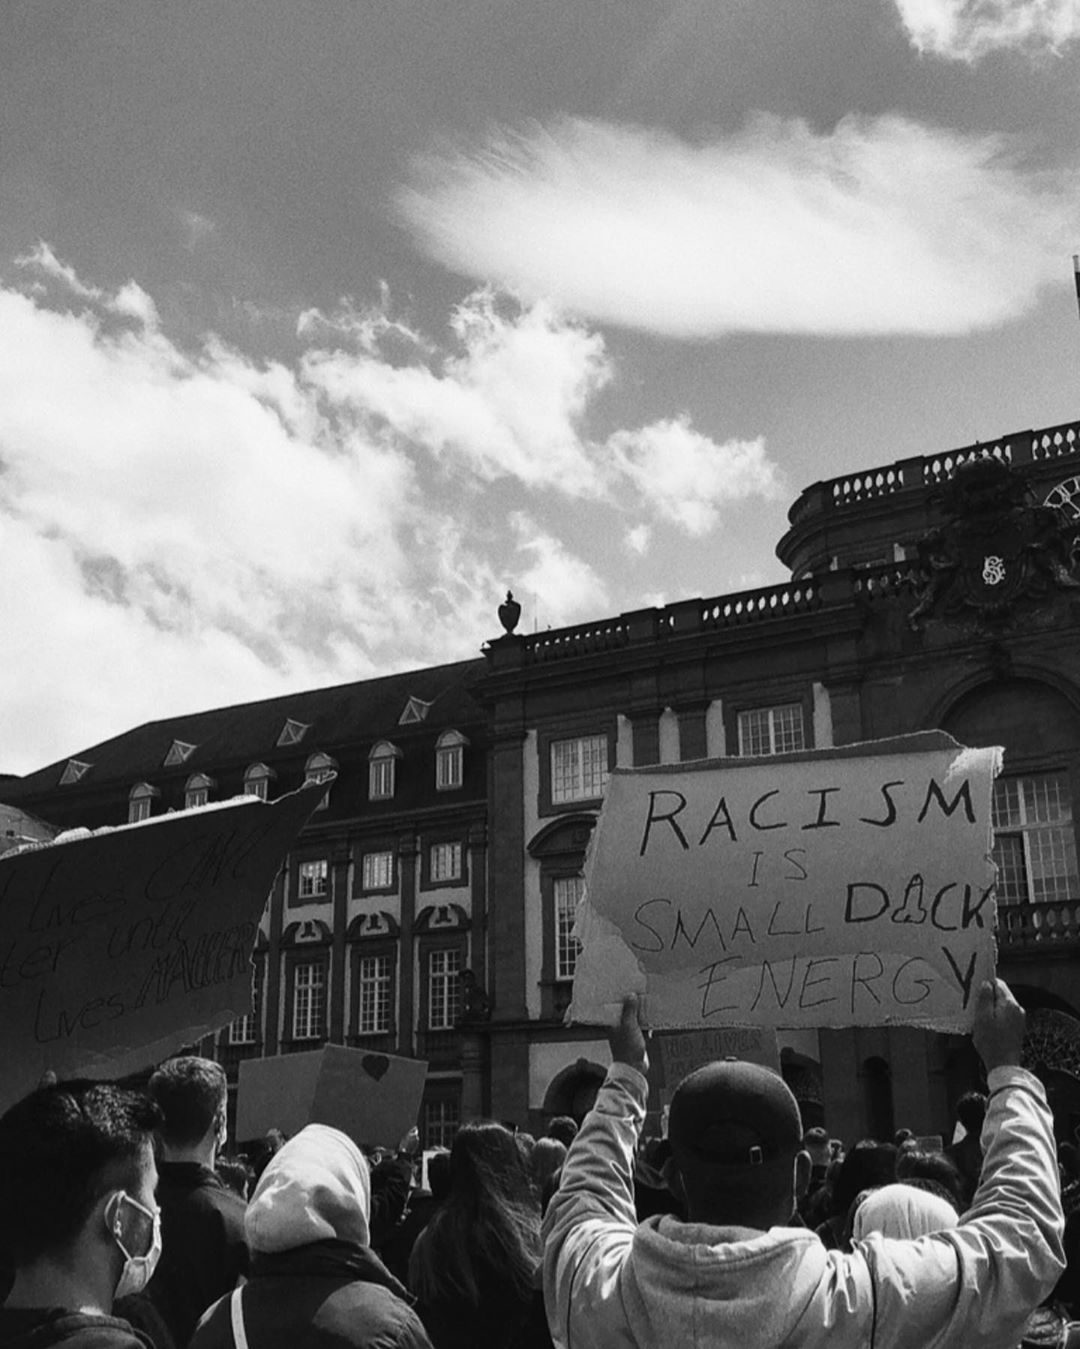 Lives CAN'T
ter until
Lives MATTER
RACISM
IS
SMALL DICK
ENERGY